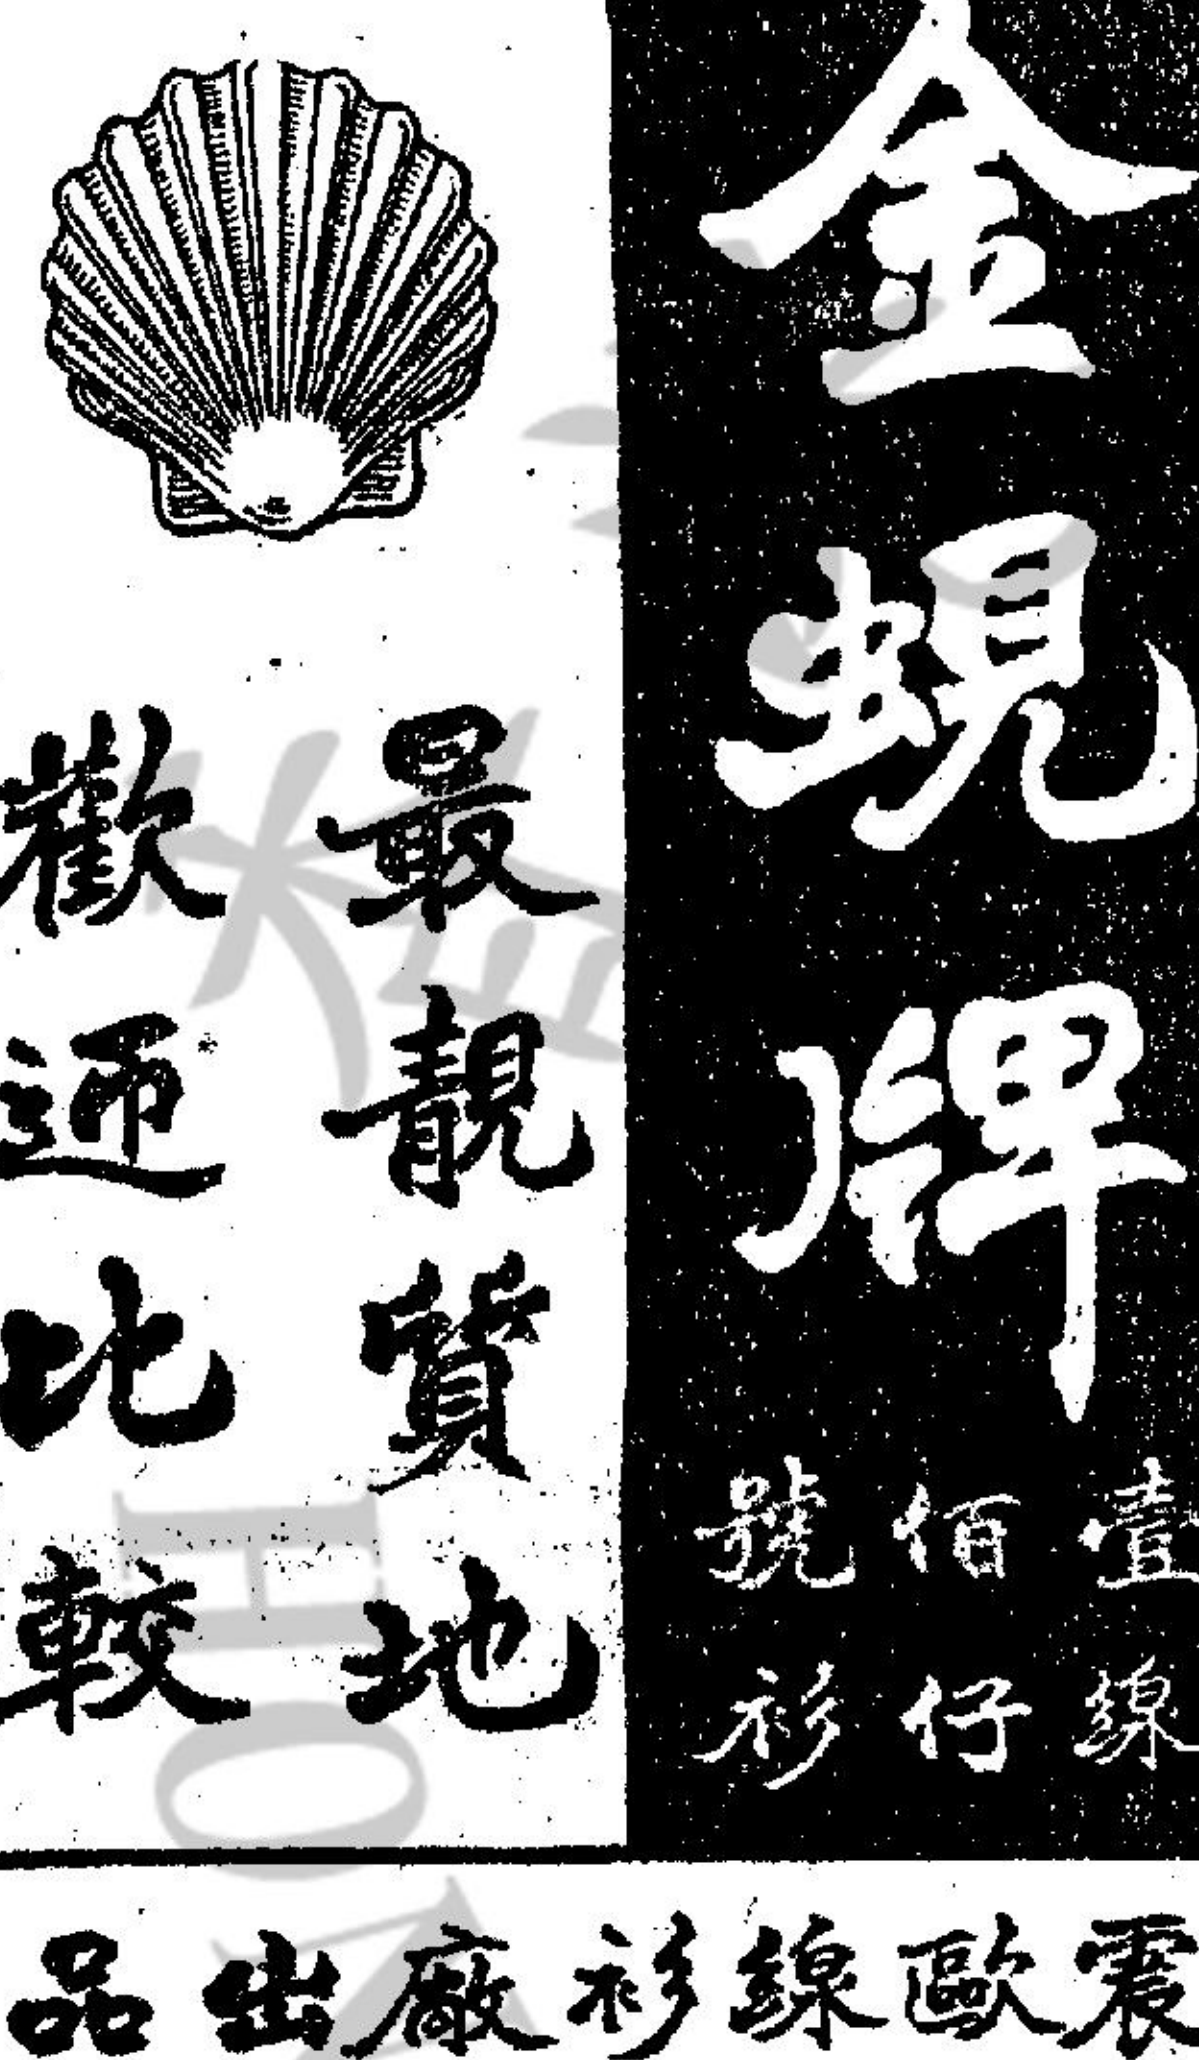 金蜆牌
壹佰號
線仔衫
最靚質地
歡迎比較
震歐線衫廠出品